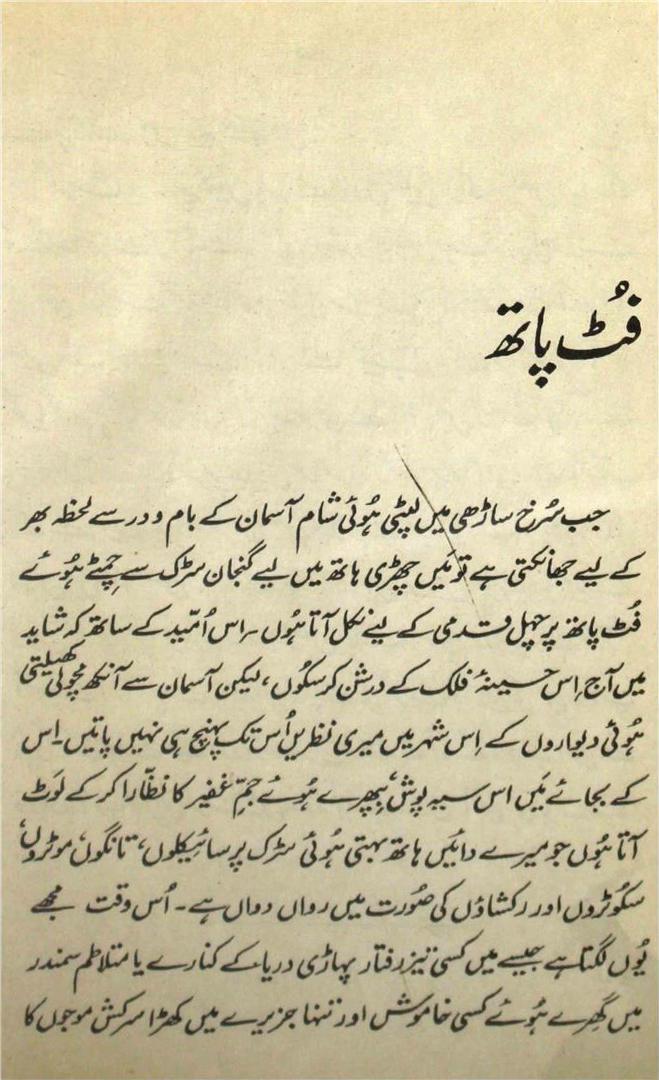 فُٹ پاتھ
جب سُرخ ساڑھی میں لپٹی ہُوئی شام آسمان کے بام و در سے لحظہ بھر
کے لیے جھانکتی ہے تو مَیں چھڑی ہاتھ میں لیے گنجان سڑک سے چمٹے ہُوئے
فُٹ پاتھ پر چہل قدمی کے لیے نکل آتا ہُوں ۔ اِس اُمّید کے ساتھ کہ شاید
میں آج اِس حسینۂ فلک کے درشن کر سکوں ، لیکن آسمان سے آنکھ مچولی کھیلتی
ہُوئی دیواروں کے اِس شہر میں میری نظریں اُس تک پہنچ ہی نہیں پاتیں ۔ اِس
کے بجائے مَیں اس سیہ پوش، بپھرے ہُوئے جمِّ غفیر کا نظّارا کر کے لَوٹ
آتا ہُوں جو میرے دائیں ہاتھ بہتی ہُوئی سڑک پر سائیکلوں، تانگوں، موٹروں،
سکوٹروں اور رکشاؤں کی صُورت میں رواں دواں ہے ۔ اُس وقت مجھے
یُوں لگتا ہے جیسے میں کسی تیز رفتار پہاڑی دریا کے کنارے یا متلاطم سمندر
میں گھِرے ہُوئے کسی خاموش اور تنہا جزیرے میں کھڑا سرکش موجوں کا